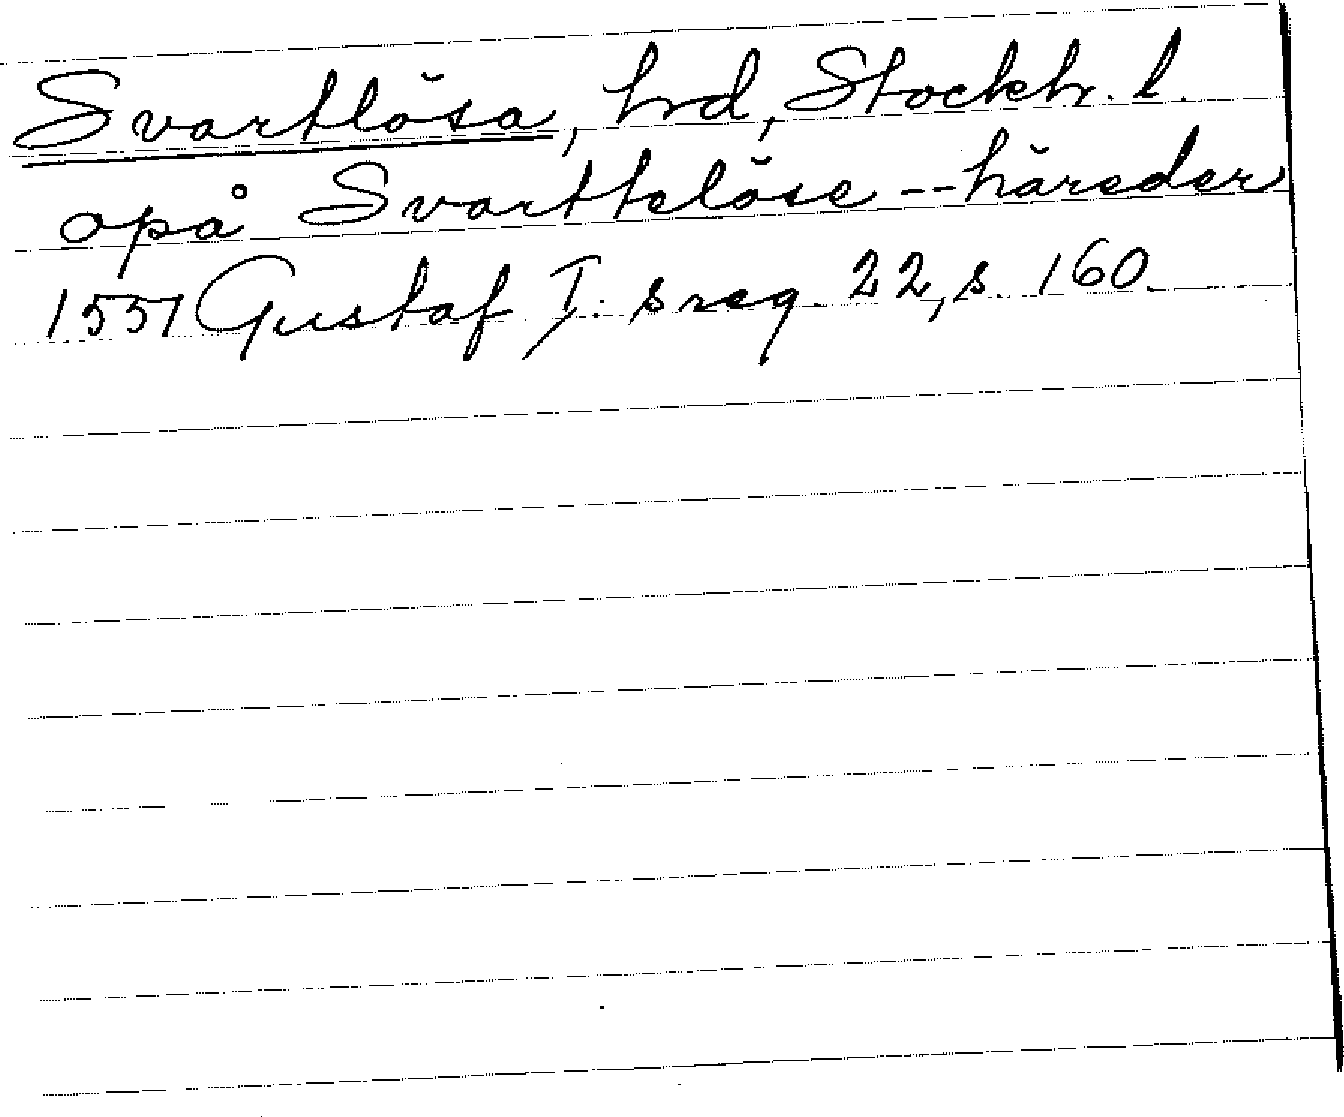 Svartlösa, hrd, Stockh. l.
opå Svartteløse -- häreder
1557 Gustaf I:s reg. 22, s. 160